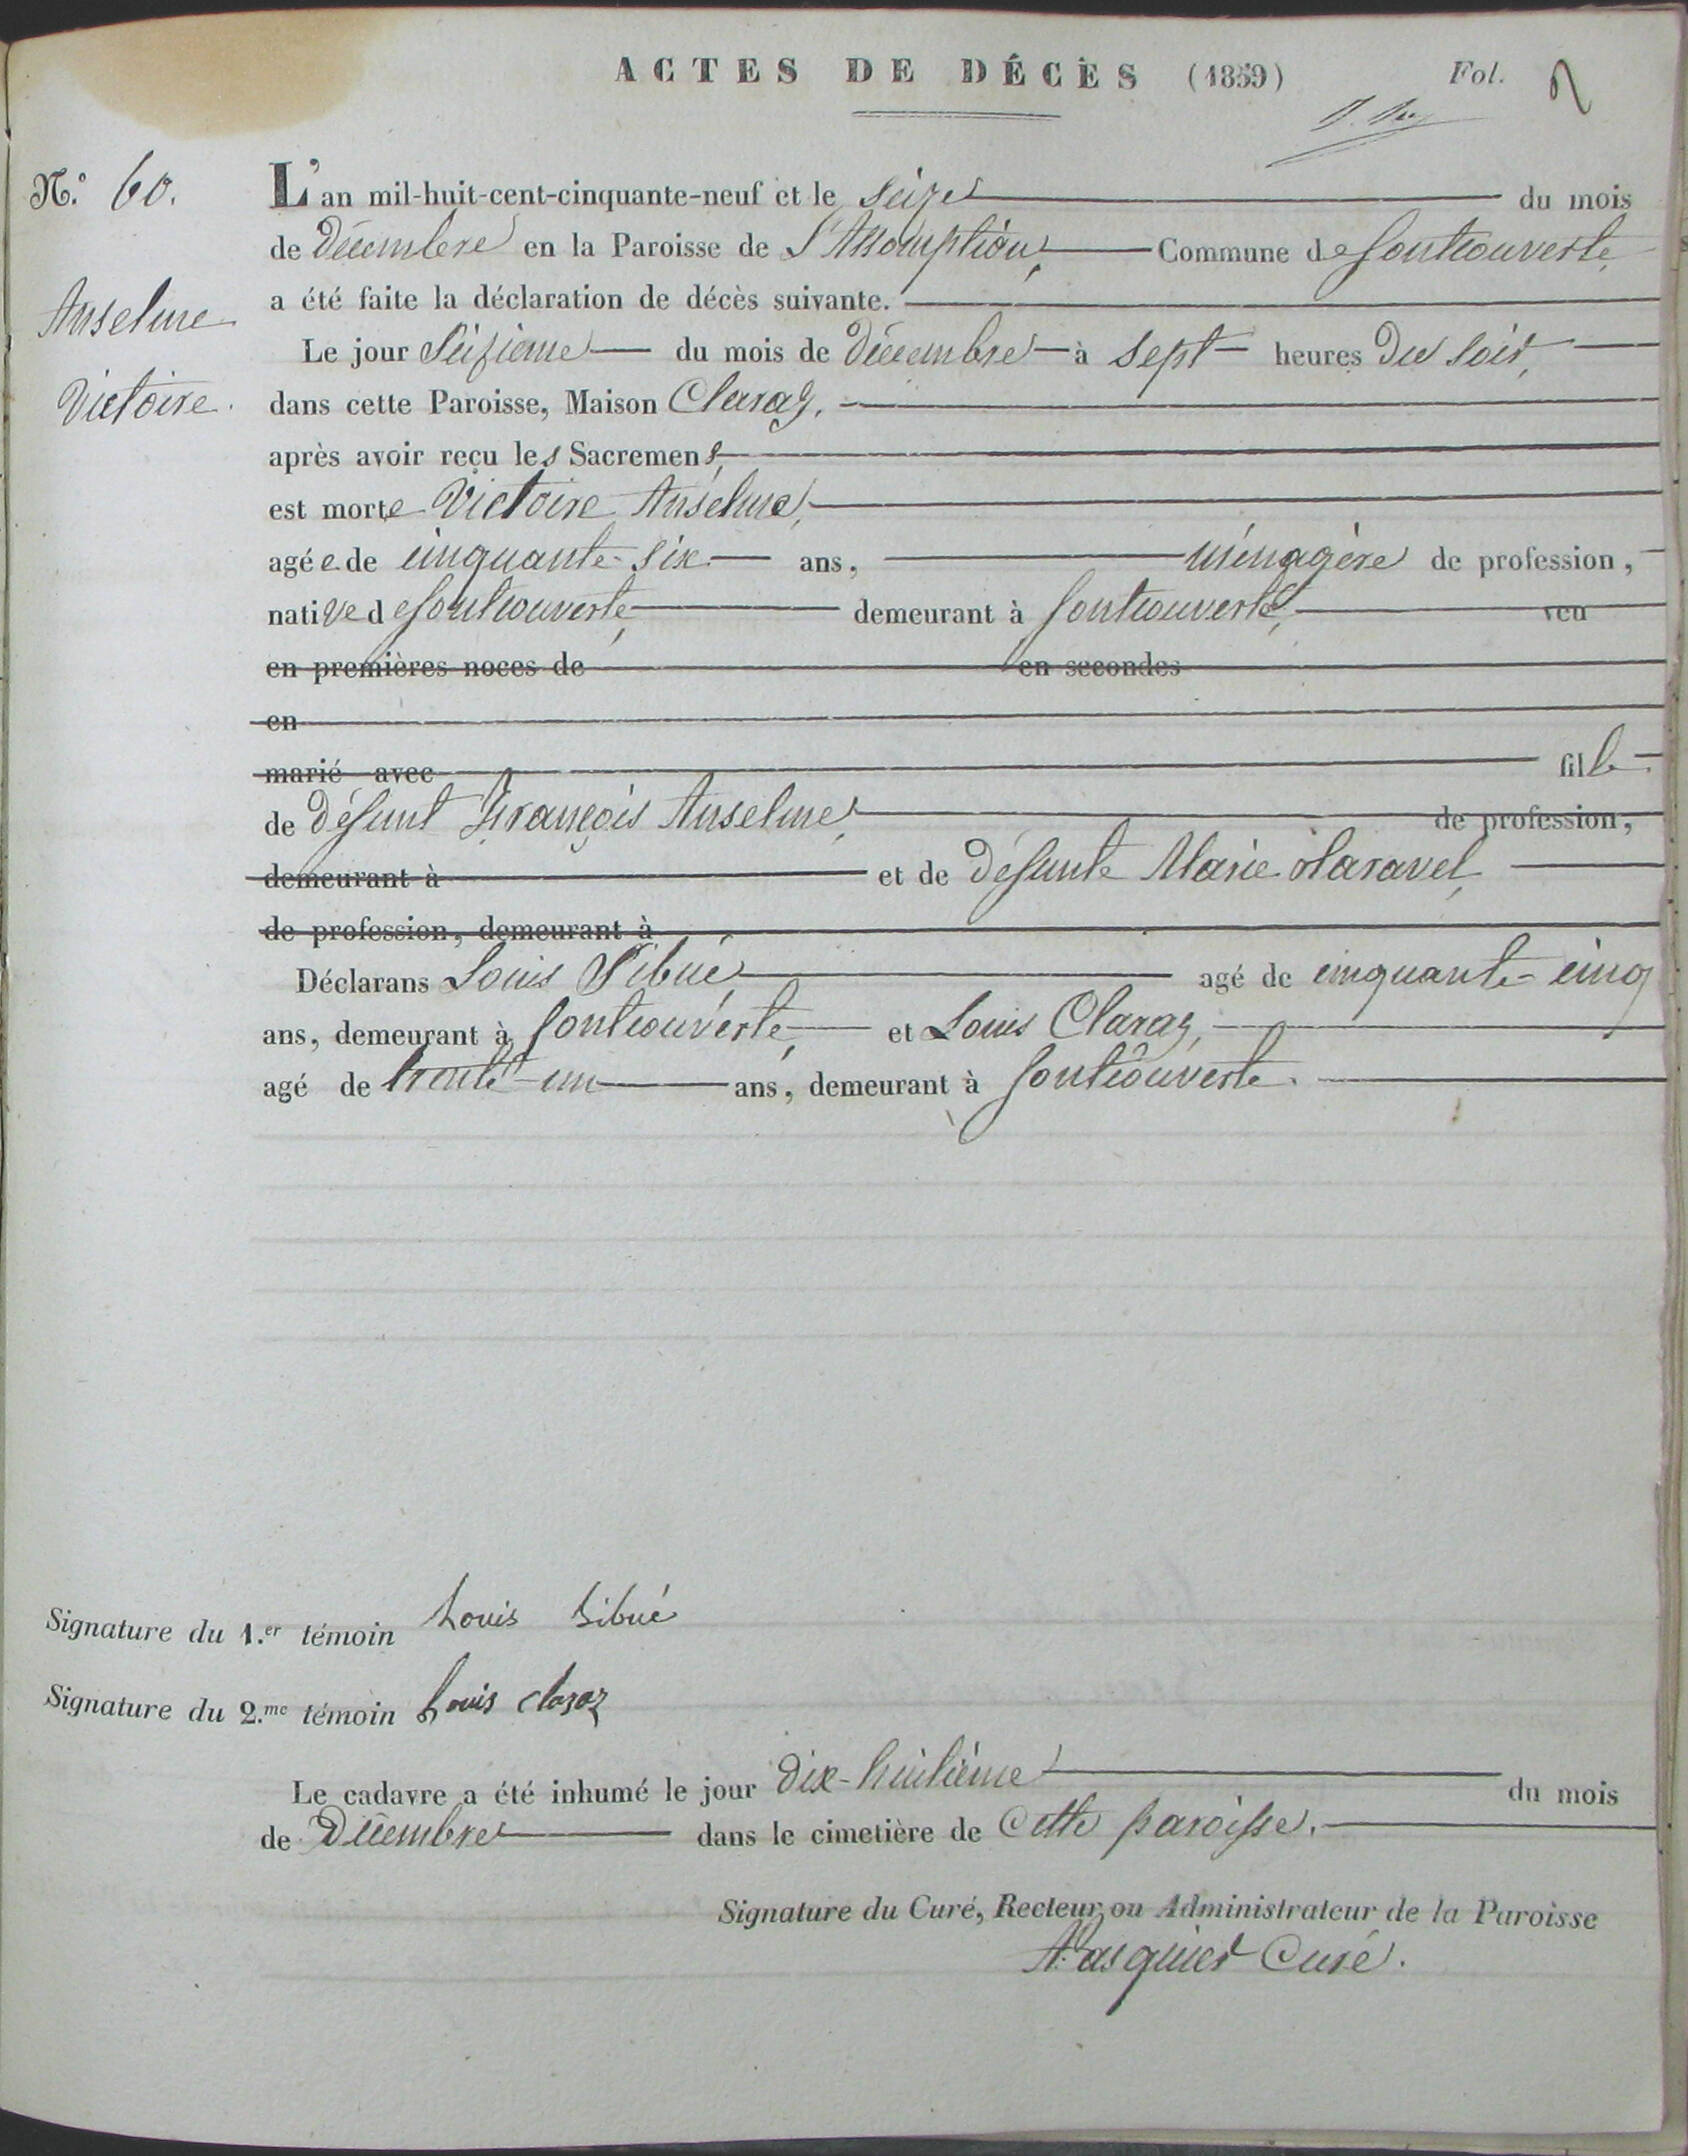 ACTES DE DÉCÈS (1859) Fol. 2
N.° 60. L'an mil-huit-cent-cinquante-neuf et le seize du mois
de Décembre en la Paroisse de l'Assomption, Commune de Fontcouverte,
Anselme a été faite la déclaration de décès suivante.
Le jour Seizième du mois de Décembre à sept heures Du soir,
Victoire. dans cette Paroisse, Maison Claraz,
après avoir reçu les Sacremens,
est morte Victoire Anselme,
agée de cinquante-six ans, ménagère de profession,
native de Fontcouverte, demeurant à Fontcouverte, veu
en premières noces de en secondes
en
marié avec fille
de Défunt François Anselme, de profession,
demeurant à et de Défunte Marie Naravel,
de profession, demeurant à
Déclarans Louis Sibué, agé de cinquante-cinq
ans, demeurant à Fontcouverte, et Louis Claraz,
agé de trente-un ans, demeurant à Fontcouverte.
Signature du 1.er témoin Louis Sibué
Signature du 2.me témoin Louis Claraz
Le cadavre a été inhumé le jour Dix-huitième du mois
de Décembre dans le cimetière de cette paroisse.
Signature du Curé, Recteur ou Administrateur de la Paroisse
Pasquier Curé.